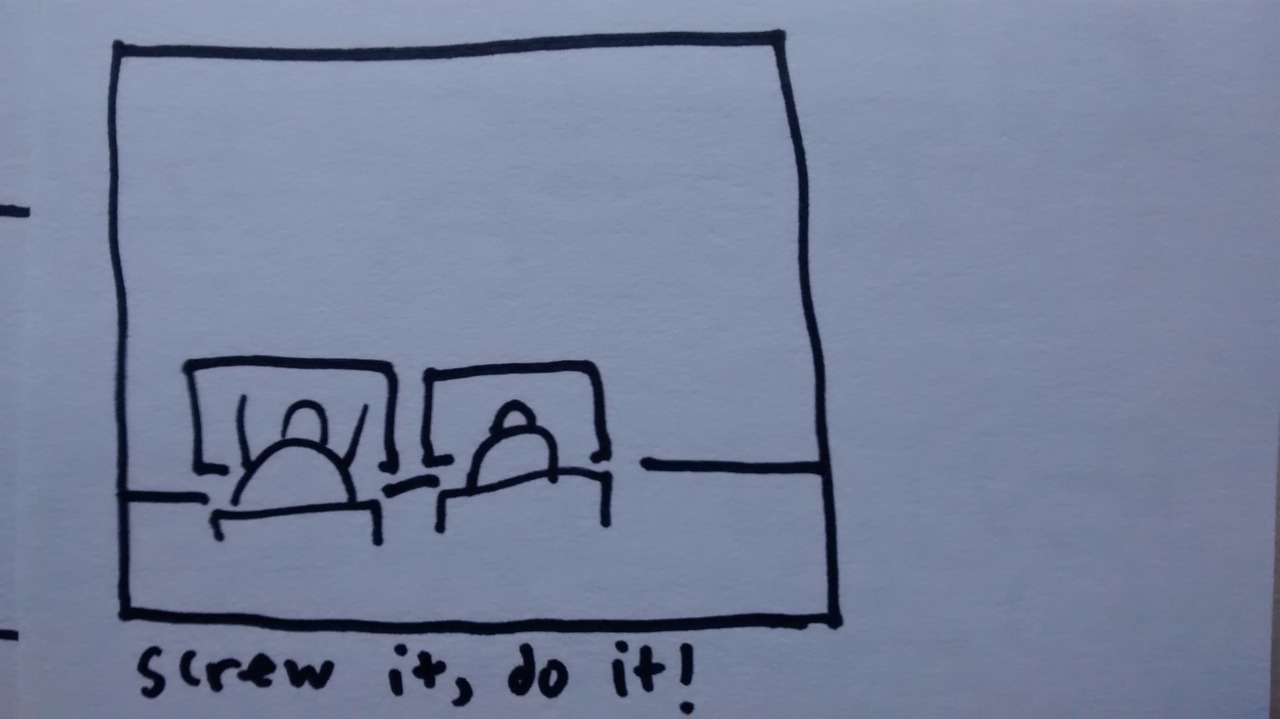 screw it, do it!